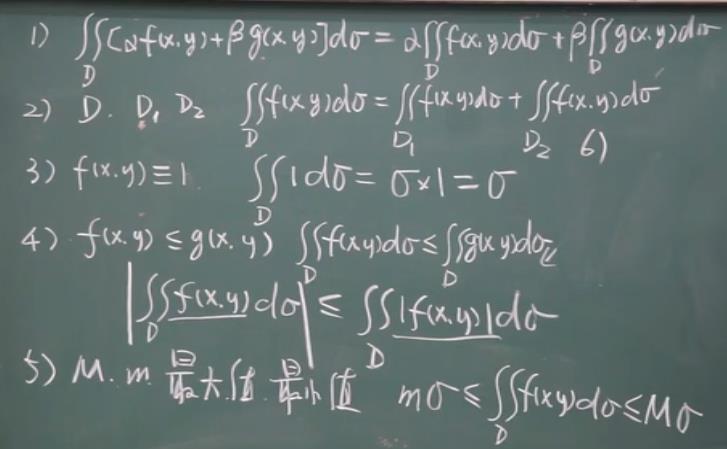 1) ∬_D [αf(x,y)+βg(x,y)]dσ = α∬_D f(x,y)dσ + β∬_D g(x,y)dσ
2) D. D₁ D₂ ∬_D f(x,y)dσ = ∬_D₁ f(x,y)dσ + ∬_D₂ f(x,y)dσ
6)
3) f(x,y)≡1. ∬_D 1dσ = σ×1 = σ
4) f(x,y) ≤ g(x,y) ∬_D f(x,y)dσ ≤ ∬_D g(x,y)dσ
|∬_D f(x,y)dσ| ≤ ∬_D |f(x,y)|dσ
5) M. m. 最大值. 最小值 mσ ≤ ∬_D f(x,y)dσ ≤ Mσ